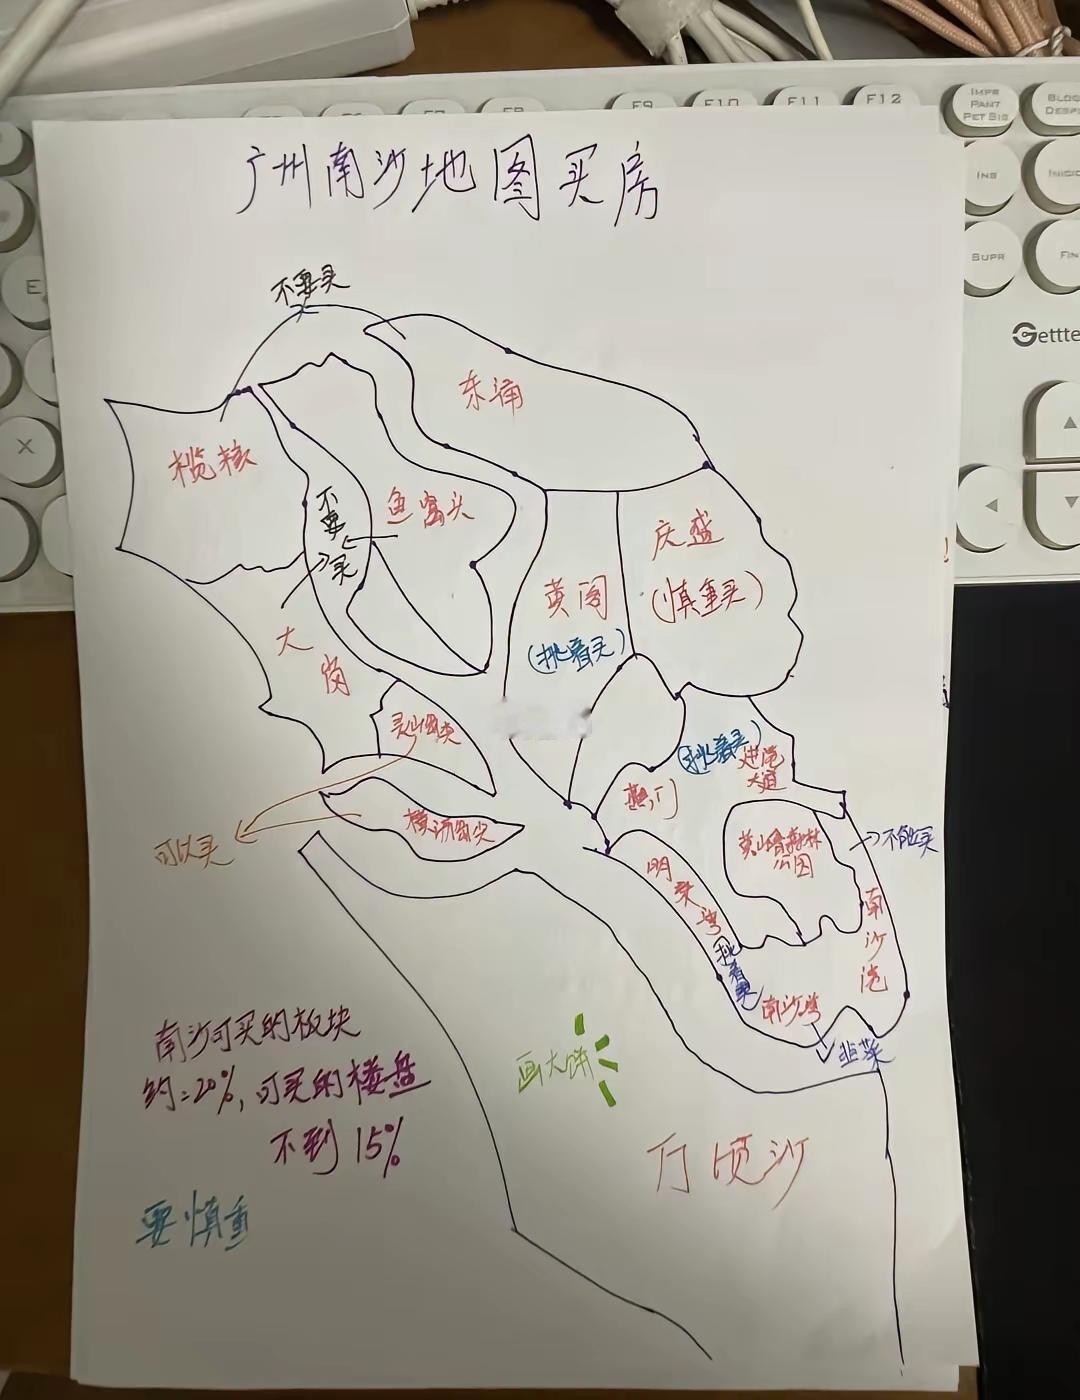 IMPR
PANT
PET SIS
F9
F10
F11
F12
INS
SUPR
FIN
E
X
广州南沙地图买房
不要买
东涌
榄核
不要买
鱼窝头
庆盛
(慎重买)
黄阁
(挑着买)
大岗
灵山岛尖
(挑着买)
进港
大道
蕉门
横沥岛尖
可以买
黄山鲁森林
公园
不能买
明珠湾
挑着买
南沙港
南沙湾
韭菜
南沙可买的板块
约=20%,可买的楼盘
不到15%
画大饼
万顷沙
要慎重